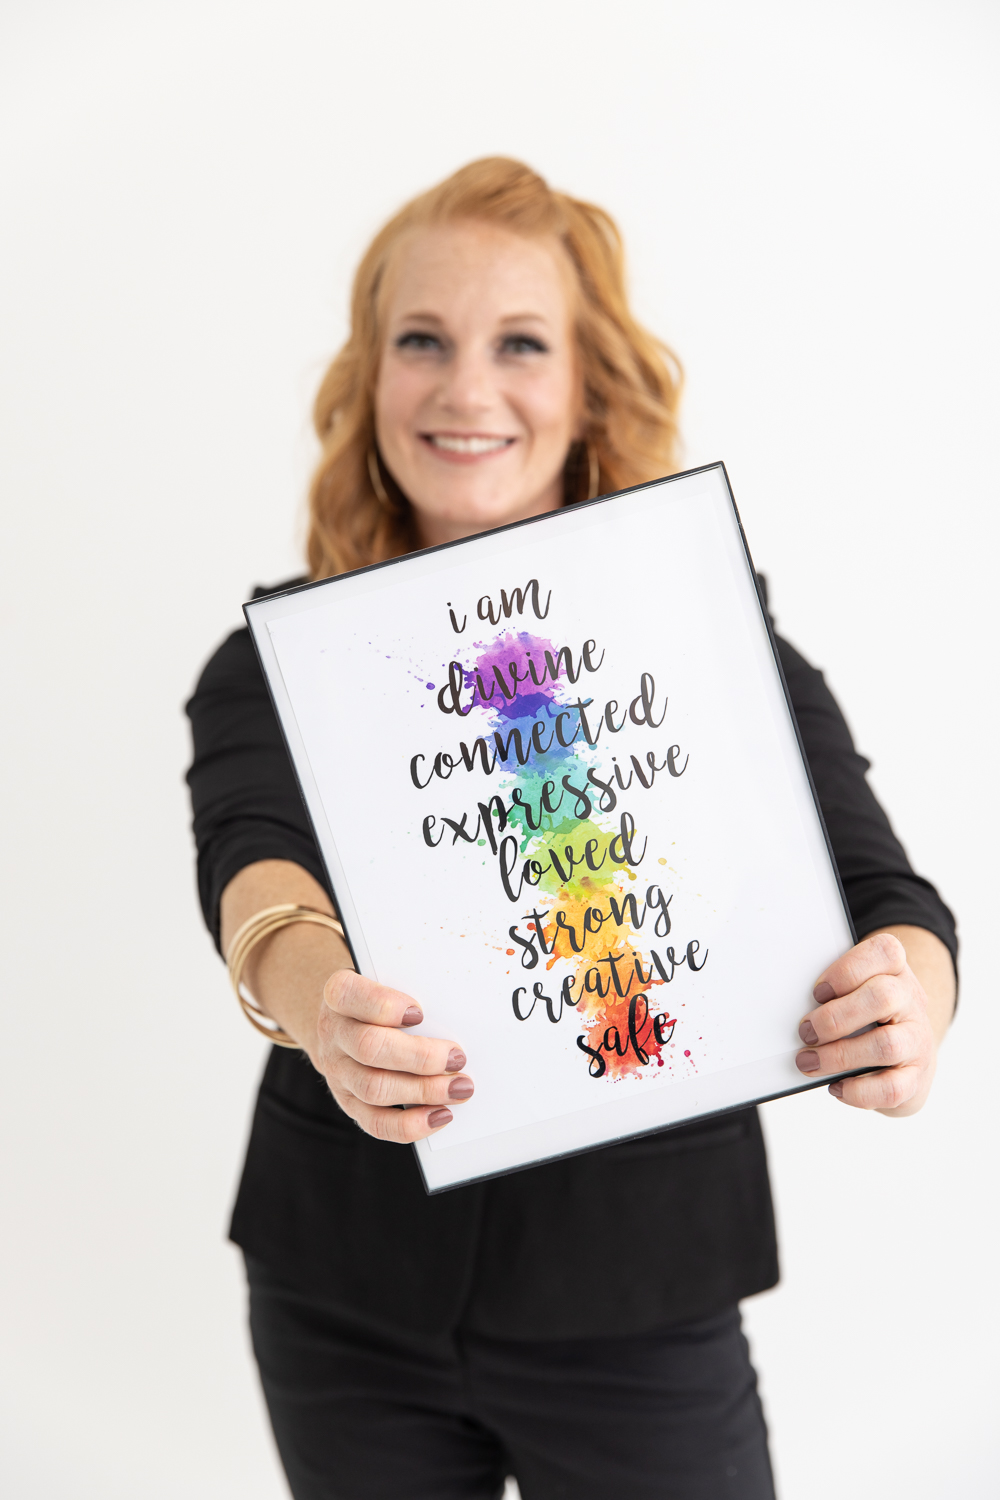 i am
divine
connected
expressive
loved
strong
creative
safe